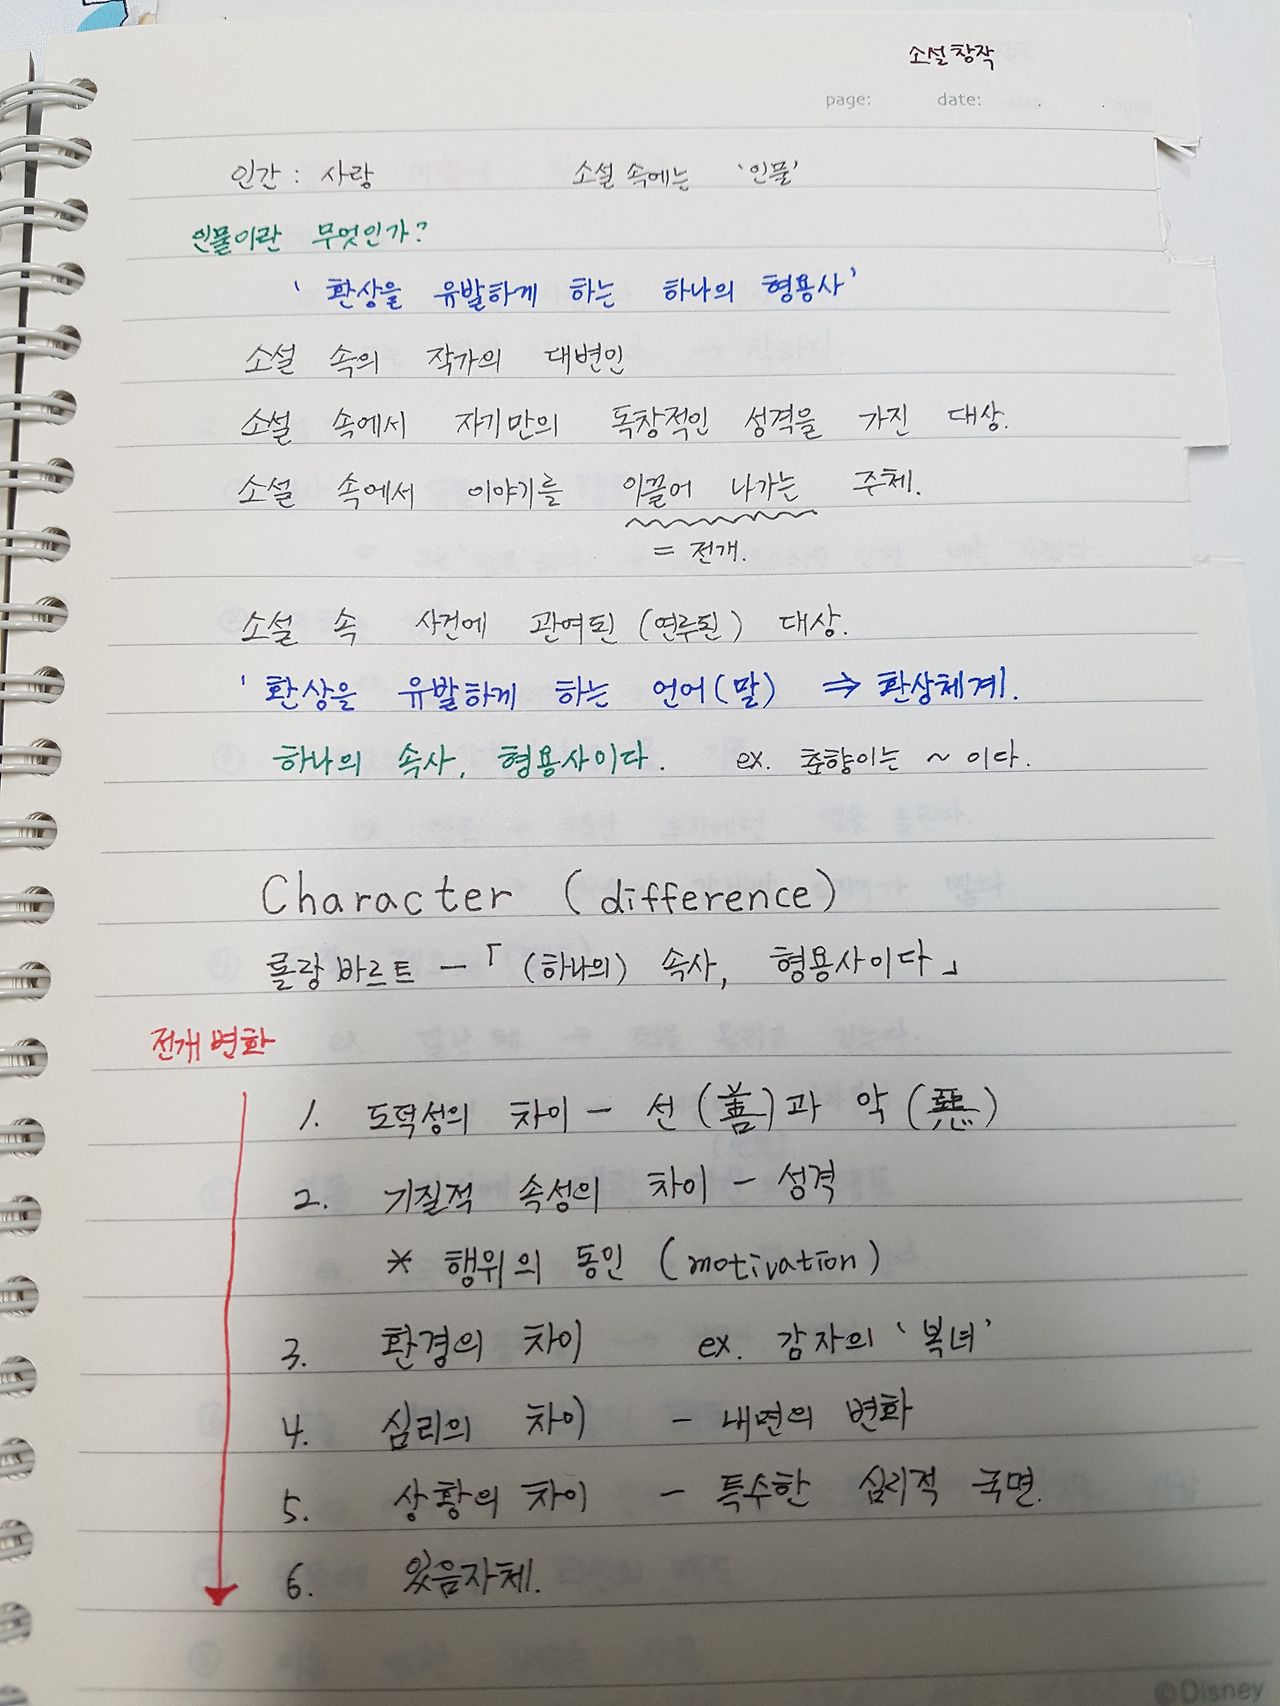 소설창작
page: date:
인간 : 사람 소설 속에는 '인물'
인물이란 무엇인가?
' 환상을 유발하게 하는 하나의 형용사'
소설 속의 작가의 대변인
소설 속에서 자기만의 독창적인 성격을 가진 대상.
소설 속에서 이야기를 이끌어 나가는 주체.
= 전개.
소설 속 사건에 관여된 (연루된) 대상.
' 환상을 유발하게 하는 언어(말) ⇒ 환상체계.
하나의 속사, 형용사이다. ex. 춘향이는 ~ 이다.
Character (difference)
롤랑바르트 - 「 (하나의) 속사, 형용사이다」
전개변화
1. 도덕성의 차이 - 선 (善)과 악 (惡)
2. 기질적 속성의 차이 - 성격
* 행위의 동인 (motivation)
3. 환경의 차이 ex. 감자의 '복녀'
4. 심리의 차이 - 내면의 변화
5. 상황의 차이 - 특수한 심리적 국면.
6. 있음자체.
©Disney